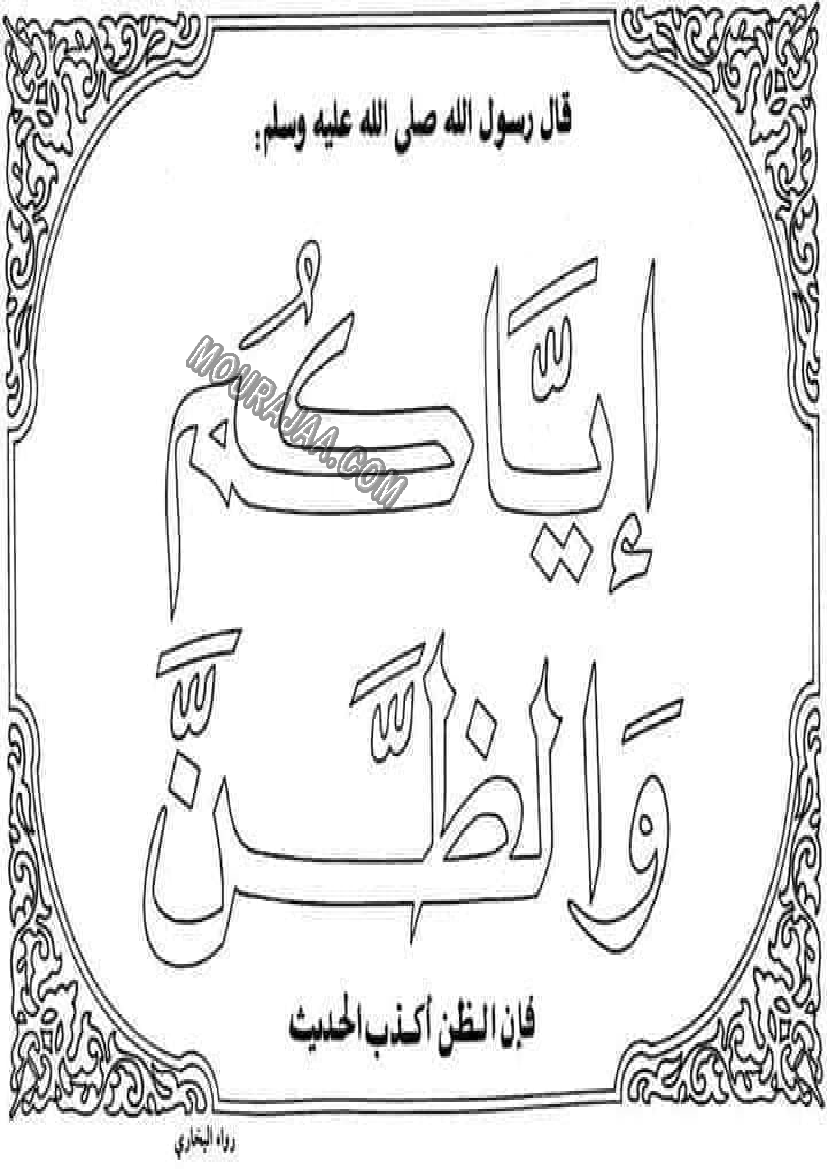 قال رسول الله صلى الله عليه وسلم:
إِيَّاكُم
MOURAJAA.COM
وَالظَّنَّ
فإن الظن أكذب الحديث
رواه البخاري